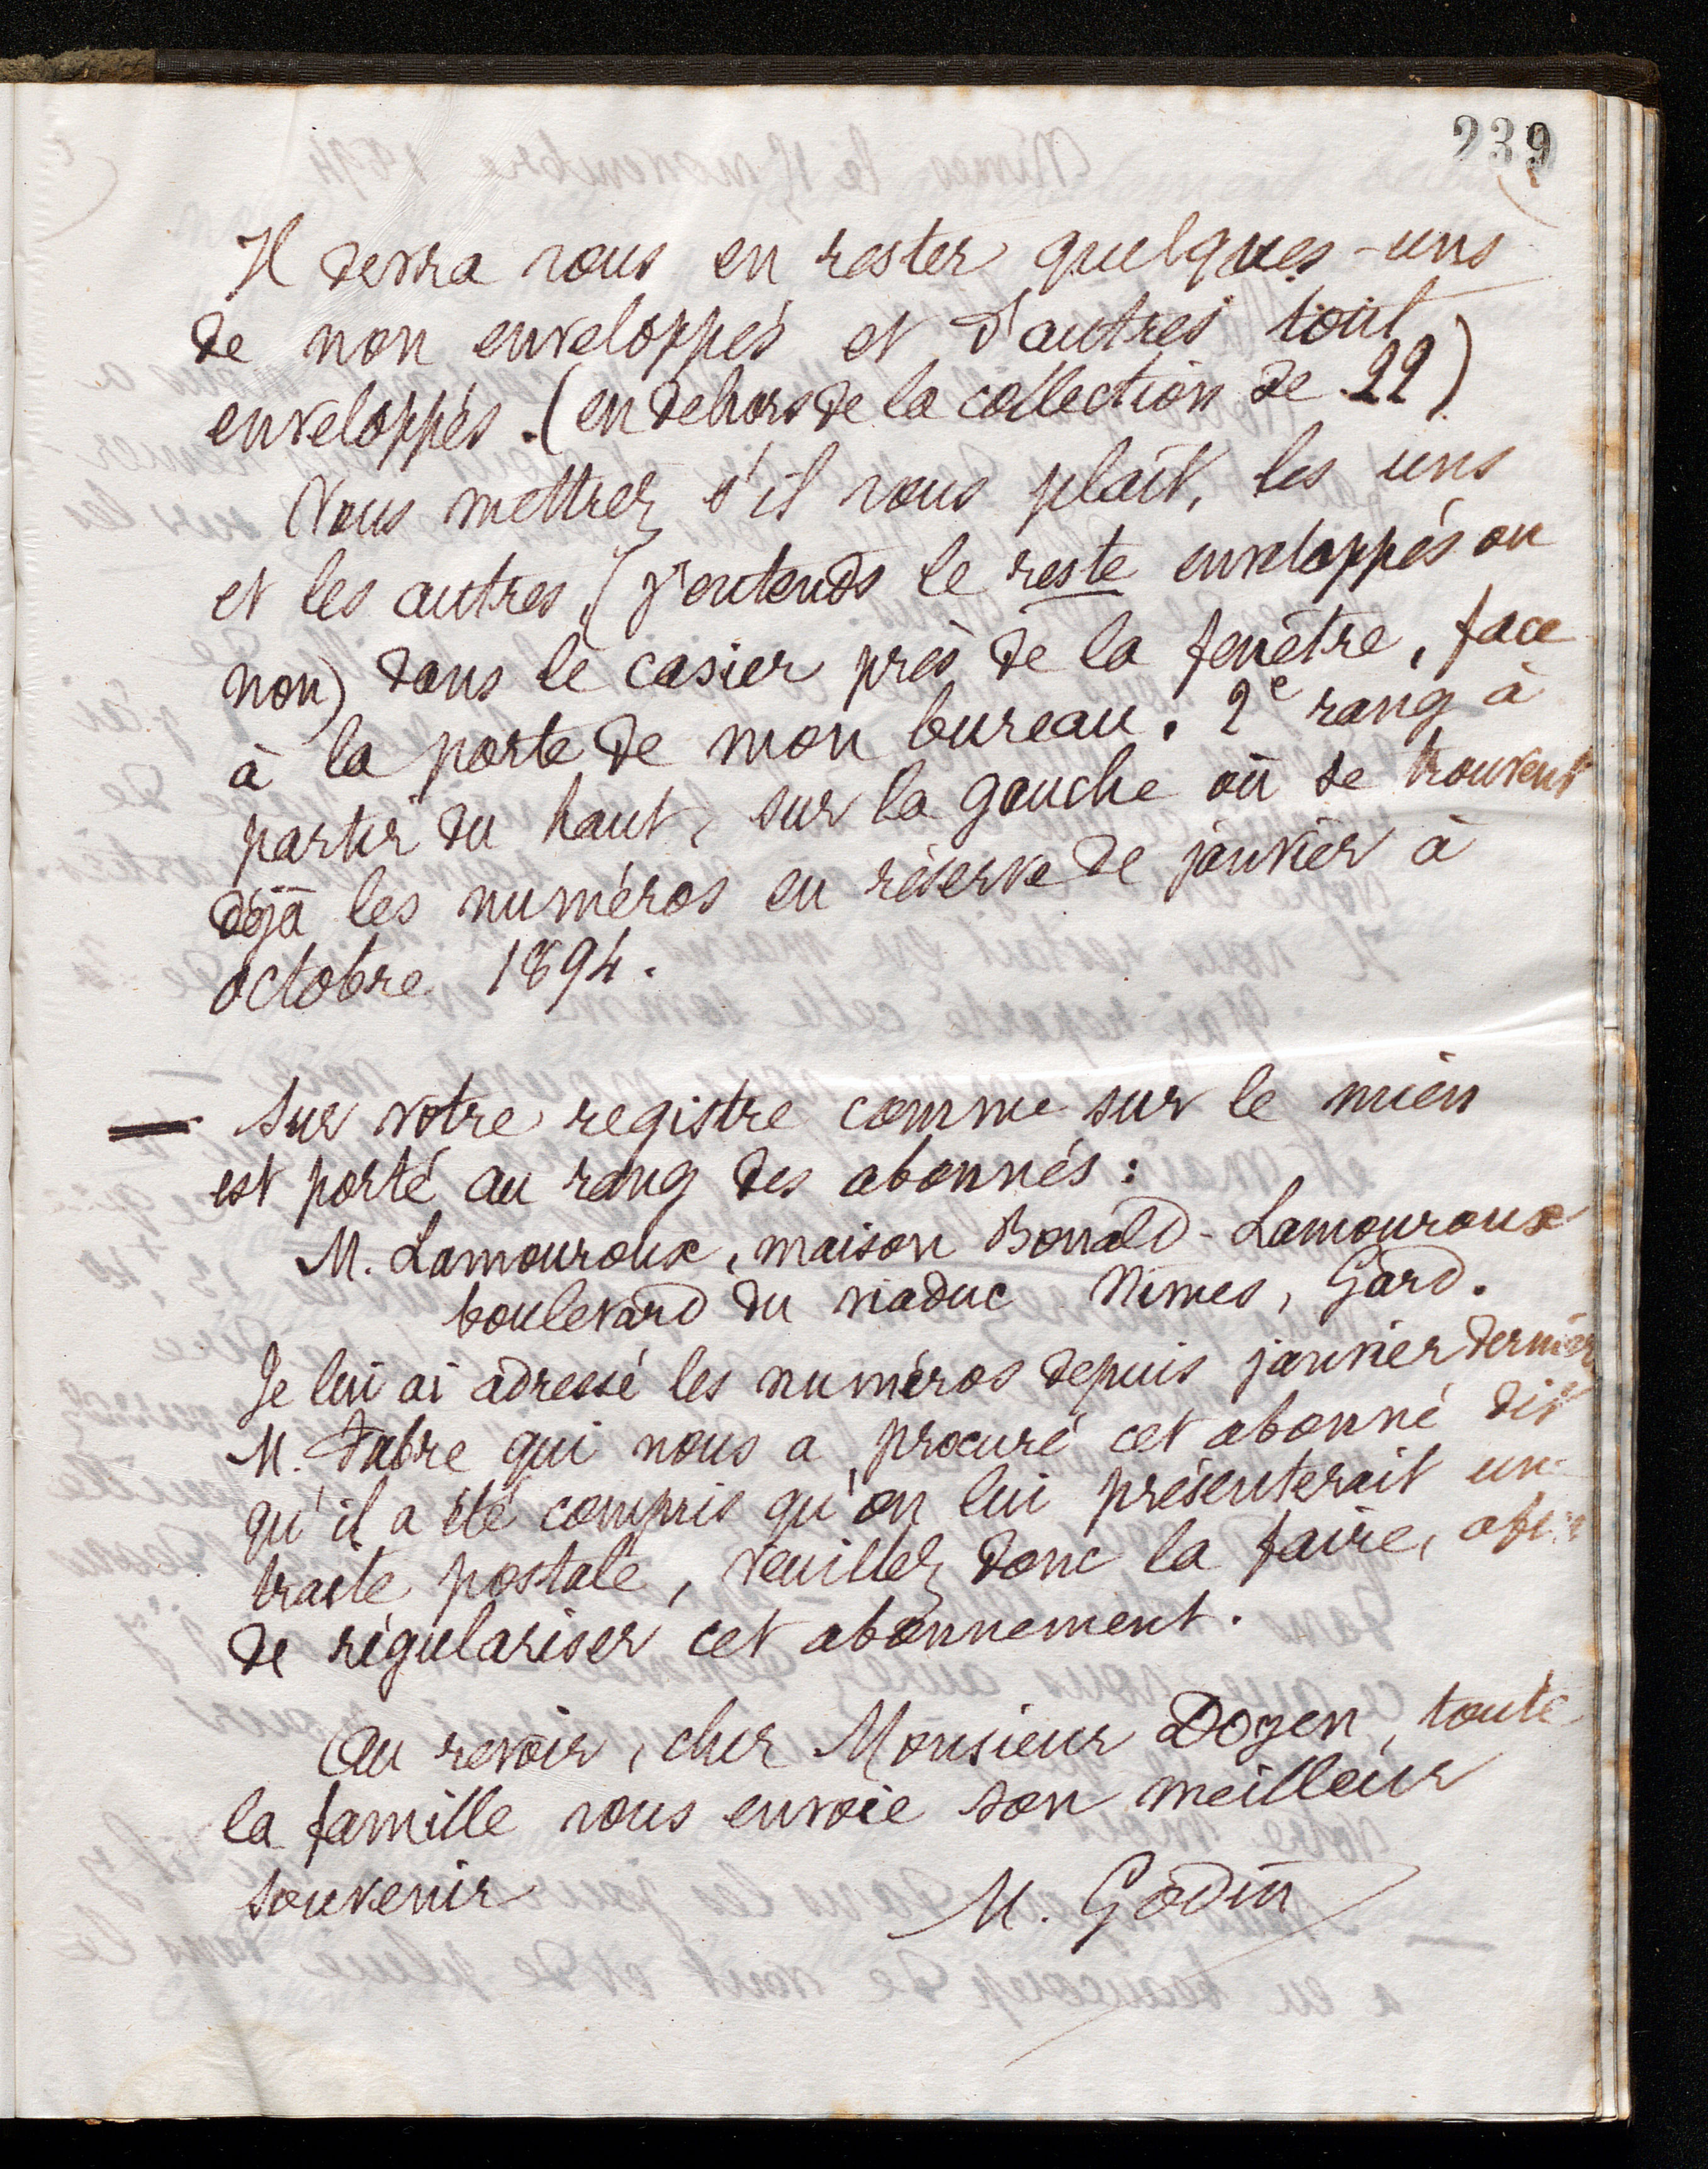 239
Il devra vous en rester quelques-uns
de non enveloppés et d'autres tout
enveloppés. (en dehors de la collection de 22)
Vous mettrez s'il vous plaît, les uns
et les autres, (j'entends le reste enveloppés ou
non) dans le casier près de la fenêtre, face
à la porte de mon bureau. 2e rang à
partir du haut, sur la gauche où se trouvent
déjà les numéros en réserve de janvier à
octobre 1894.
— Sur votre registre comme sur le mien
est porté au rang des abonnés:
M. Lamouroux, maison Bonald-Lamouroux
boulevard du viaduc Nîmes, Gard.
Je lui ai adressé les numéros depuis janvier dernier
M. Fabre qui nous a procuré cet abonné dit
qu'il a été compris qu'on lui présenterait une
traite postale, veuillez donc la faire, afin
de régulariser cet abonnement.
Au revoir, cher Monsieur Doyen, toute
la famille vous envoie son meilleur
souvenir
M. Godin